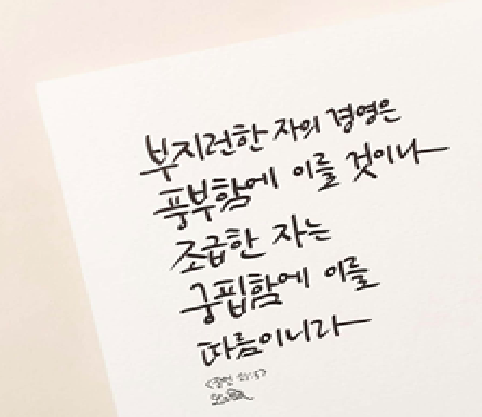 부지런한 자의 경영은
풍부함에 이를 것이나
조급한 자는
궁핍함에 이를
따름이니라
<잠언 21:5>